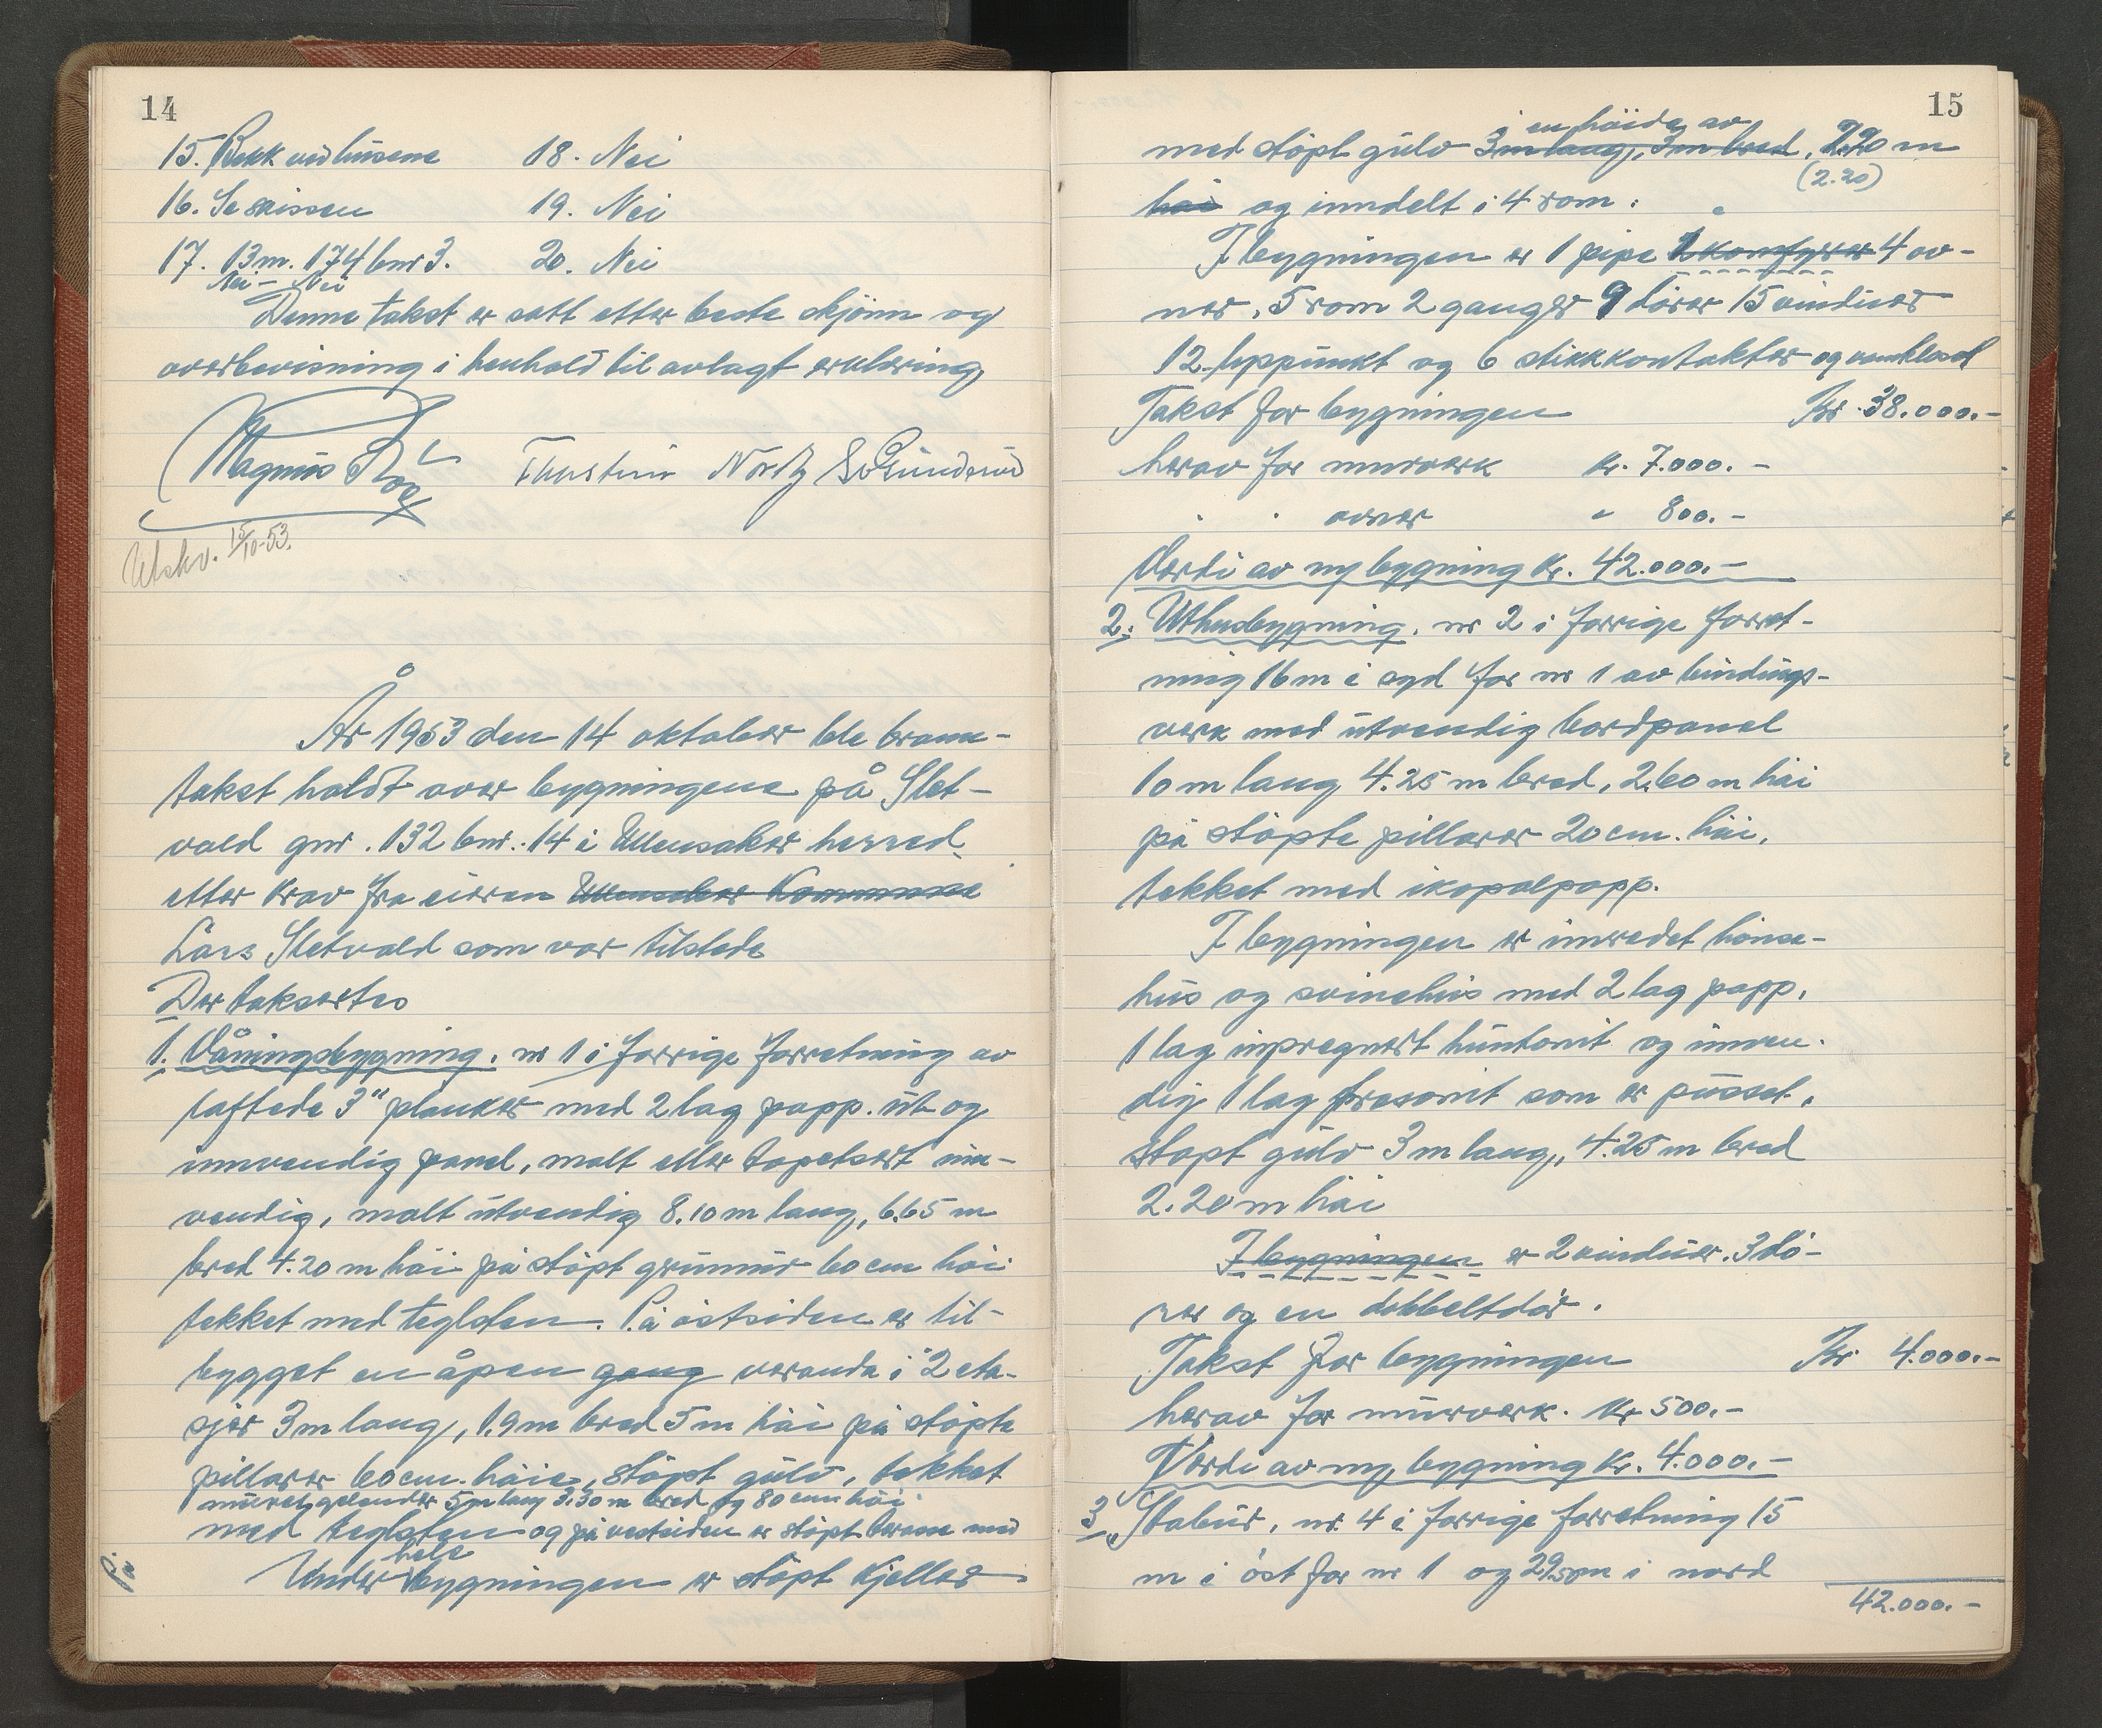 14
15. Bekk ved husene 18. Nei
16. Se skissen 19. Nei
17. 13 m. 174 bnr 3. 20. Nei
Nei - Nei
Denne takst er satt etter beste skjönn og
overbevisning i henhold til avlagt erklæring
Magnus
Thorstein Nordby
Utskr. 15/10-53.
År 1953 den 14 oktober ble brann-
takst holdt over bygningene på Slet-
vold gnr. 132 bnr. 14 i Ullensaker herred
etter krav fra eieren Ullensaker Kommune
Lars Sletvold som var tilstede
Der taksertes
1. Våningsbygning. nr 1 i forrige forretning av
laftede 3" planker med 2 lag papp. ut og
innvendig panel, malt eller tapetsert inn-
vendig, malt utvendig 8.10 m lang, 6.65 m
bred 4.20 m höi på stöpt grunnur 60 cm höi
tekket med teglsten. På östsiden er til-
bygget en åpen gang veranda i 2 eta-
sjer 3 m lang, 1.9 m bred 5 m höi på stöpte
pillarer 60 cm. höie, stöpt gulv, tekket
muret gelender 5 m lang 3.30 m bred og 80 cm höi
med teglsten og på vestsiden er stöpt terasse med
hele
Under bygningen er stöpt kjeller
15
i en höide av
med stöpt gulv 3 m lang, 3 m bred, 2.20 m
(2.20)
höi og inndelt i 4 rom.
I bygningen er 1 pipe 2 komfyrer 4 ov-
ner, 5 rom 2 ganger 9 dörer 15 vinduer
12 lyspunkt og 6 stikkkontakter og vannklosett
Takst for bygningen Kr. 38.000.-
herav for murverk Kr. 7.000.-
" " ovner " 800.-
Verdi av ny bygning Kr. 42.000.-
2. Uthusbygning. nr 2 i forrige forret-
ning 16 m i syd for nr 1 av bindings-
verk med utvendig bordpanel
10 m lang 4.25 m bred, 2.60 m höi
på stöpte pillarer 20 cm. höi,
tekket med ikopalpapp.
I bygningen er innredet hönse-
hus og svinehus med 2 lag papp,
1 lag inpregnert huntonit og innven-
dig 1 lag fresonit som er pusset,
stöpt gulv 3 m lang, 4.25 m bred
2.20 m höi
I bygningen er 2 vinduer. 3 dö-
rer og en dobbeltdör.
Takst for bygningen Kr. 4.000.-
herav for murverk. Kr 500.-
Verdi av ny bygning Kr. 4.000.-
3. Stabur, nr. 4 i forrige forretning 15
m i öst for nr 1 og 29.50 m i nord
42.000.-